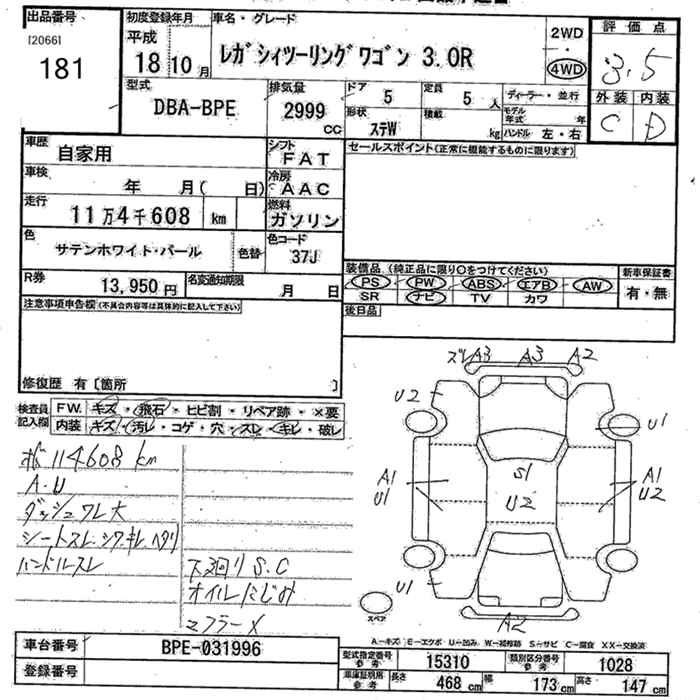 出品番号
[2066]
181
初度登録年月
平成
18 10 月
車名・グレード
レガシィツーリングワゴン 3.0R
2WD
・
4WD
評価点
3.5
外装 内装
C D
型式
DBA-BPE
排気量
2999
CC
ドア
5
形状
ステW
定員
5 人
積載
kg
ディーラー・並行
モデル年式 年
ハンドル 左・右
車歴
自家用
シフト
FAT
セールスポイント(正常に機能するものに限ります)
車検
年 月( 日)
冷房
AAC
走行
11万4千608 km
燃料
ガソリン
色
サテンホワイト・パール
色替
色コード
37J
R券
13,950 円
名変通知期限
月 日
装備品 (純正品に限り○をつけてください)
PS PW ABS エアB AW
SR ナビ TV カワ
新車保証書
有・無
後日品
注意事項申告欄(不具合内容等は具体的に記入して下さい)
修復歴 有〔箇所 〕
検査員記入欄
FW. キズ・飛石・ヒビ割・リペア跡・×要
内装 キズ・汚レ・コゲ・穴・スレ・キレ・破レ
114608 km
A.U
ダッシュワレ大
シートスレ.シワ.キレ.ヘタリ
ハンドルスレ
下廻りS.C
オイルにじみ
マフラーX
ズレA3 A3 A2
U2
U1
A1
U1
S1
U2
A1
U2
U1
A2
スペア
A-キズ E-エクボ U-凹み W-補修跡 S-サビ C-腐食 XX-交換済
車台番号
BPE-031996
登録番号
型式指定番号 参考
15310
類別区分番号 参考
1028
車庫証明用 参考
長さ 468 cm 幅 173 cm 高さ 147 cm